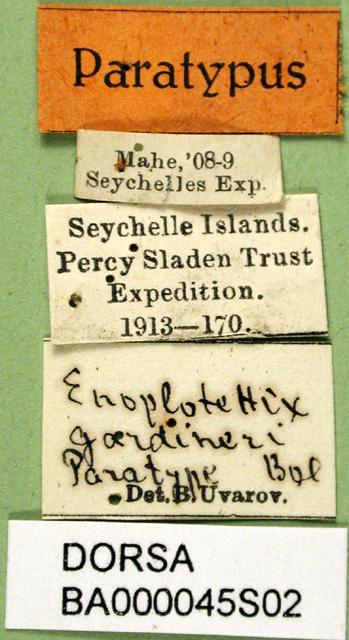 Paratypus
Mahe,'08-9
Seychelles Exp.
Seychelle Islands.
Percy Sladen Trust
Expedition.
1913—170.
Enoplotettix
gardineri
Paratype Bol
Det. B. Uvarov.
DORSA
BA000045S02